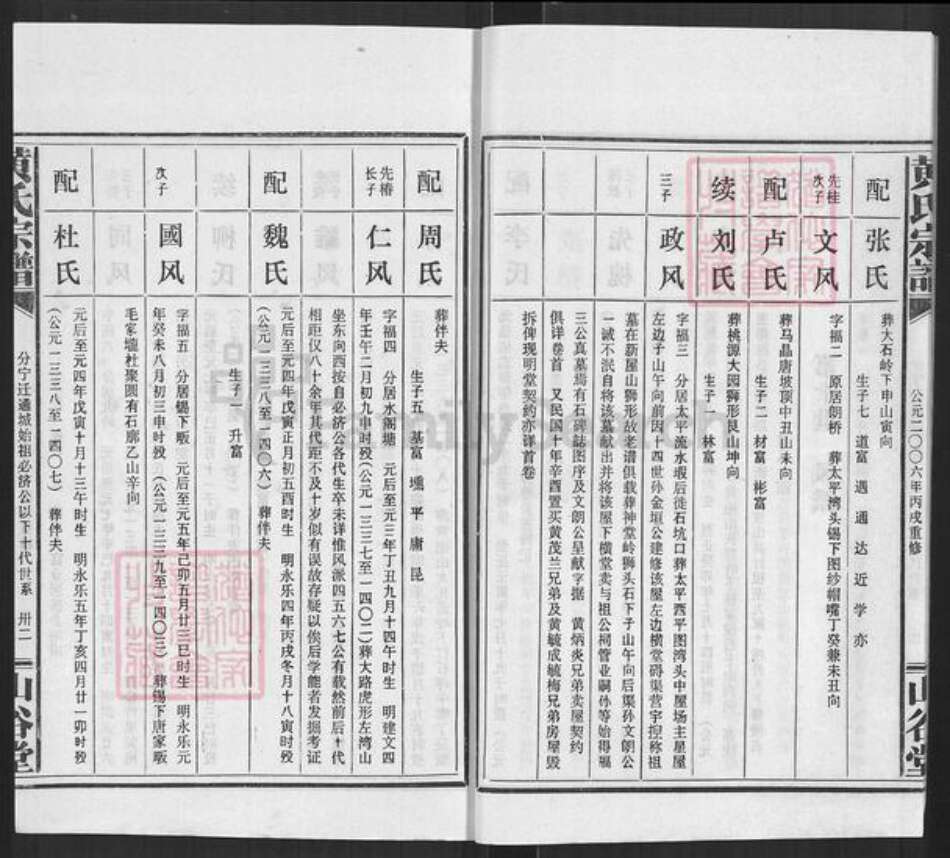 黄氏宗譜
公元二〇〇六年丙戌重修
山谷堂
配 张氏
葬大石岭下申山寅向
生子七 道富 遇 通 达 近 学 亦
先桂次子 文风
字福二 原居朗桥 葬太平湾头锡下图纱帽嘴丁癸兼未丑向
配 卢氏
葬马晶唐坡顶中丑山未向
生子二 材富 彬富
续 刘氏
葬桃源大园狮形艮山坤向
生子一 林富
三子 政风
字福三 分居太平流水瑕后徙石坑口葬太平西平图湾头中屋场主星屋
左边子山午向前因十四世孙金垣公建修该屋左边横堂碍渠营宇揑称祖
墓在新屋山狮形故老谱俱载葬神堂岭狮头石下子山午向后渠孙文朗公
一诚不泯自将该墓献出并将该屋下横堂卖与祖公祠管业嗣孙等始得福
三公真墓焉有石碑誌图序及文朗公呈献字据 黄炳炎兄弟卖屋契约
俱详卷首 又民国十年辛酉置买黄茂兰兄弟及黄毓成毓梅兄弟房屋毁
拆俾现明堂契约亦详首卷
配 周氏
葬伴夫
生子五 基富 壎 平 庸 昆
先椿长子 仁风
字福四 分居水阁塘 元后至元三年丁丑九月十四午时生 明建文四
年壬午二月初九申时殁(公元一三三七至一四〇二)葬大路虎形左湾山
坐东向西按自必济公各代生卒未详惟风派四五六七公有载然前后十代
相距仅八十余年其代距不及十岁似有误故存疑以俟后学能者发掘考证
配 魏氏
元后至元四年戊寅正月初五酉时生 明永乐四年丙戌冬月十八寅时殁
(公元一三三八至一四〇六) 葬伴夫
生子一 升富
次子 國风
字福五 分居锡下畈 元后至元五年己卯五月廿三巳时生 明永乐元
年癸未八月初三申时殁 (公元一三三九至一四〇三) 葬锡下唐家畈
毛家壠杜聚圆有石廓乙山辛向
配 杜氏
元后至元四年戊寅十月十三午时生 明永乐五年丁亥四月廿一卯时殁
(公元一三三八至一四〇七) 葬伴夫
黄氏宗譜
分宁迁通城始祖必济公以下十代世系 卅二
山谷堂